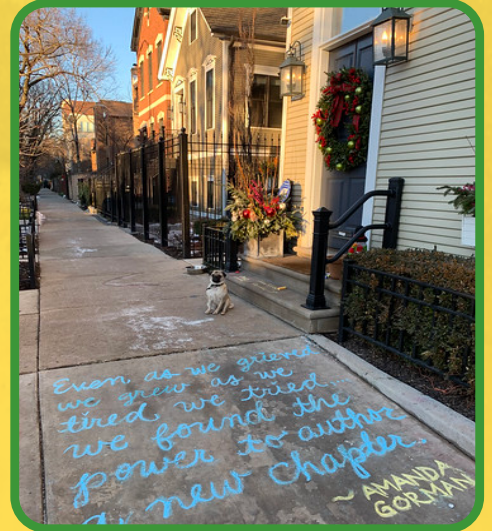 Even as we grieved
we grew as we
tired we tried...
we found the
power to author
a new chapter.
~ AMANDA
GORMAN